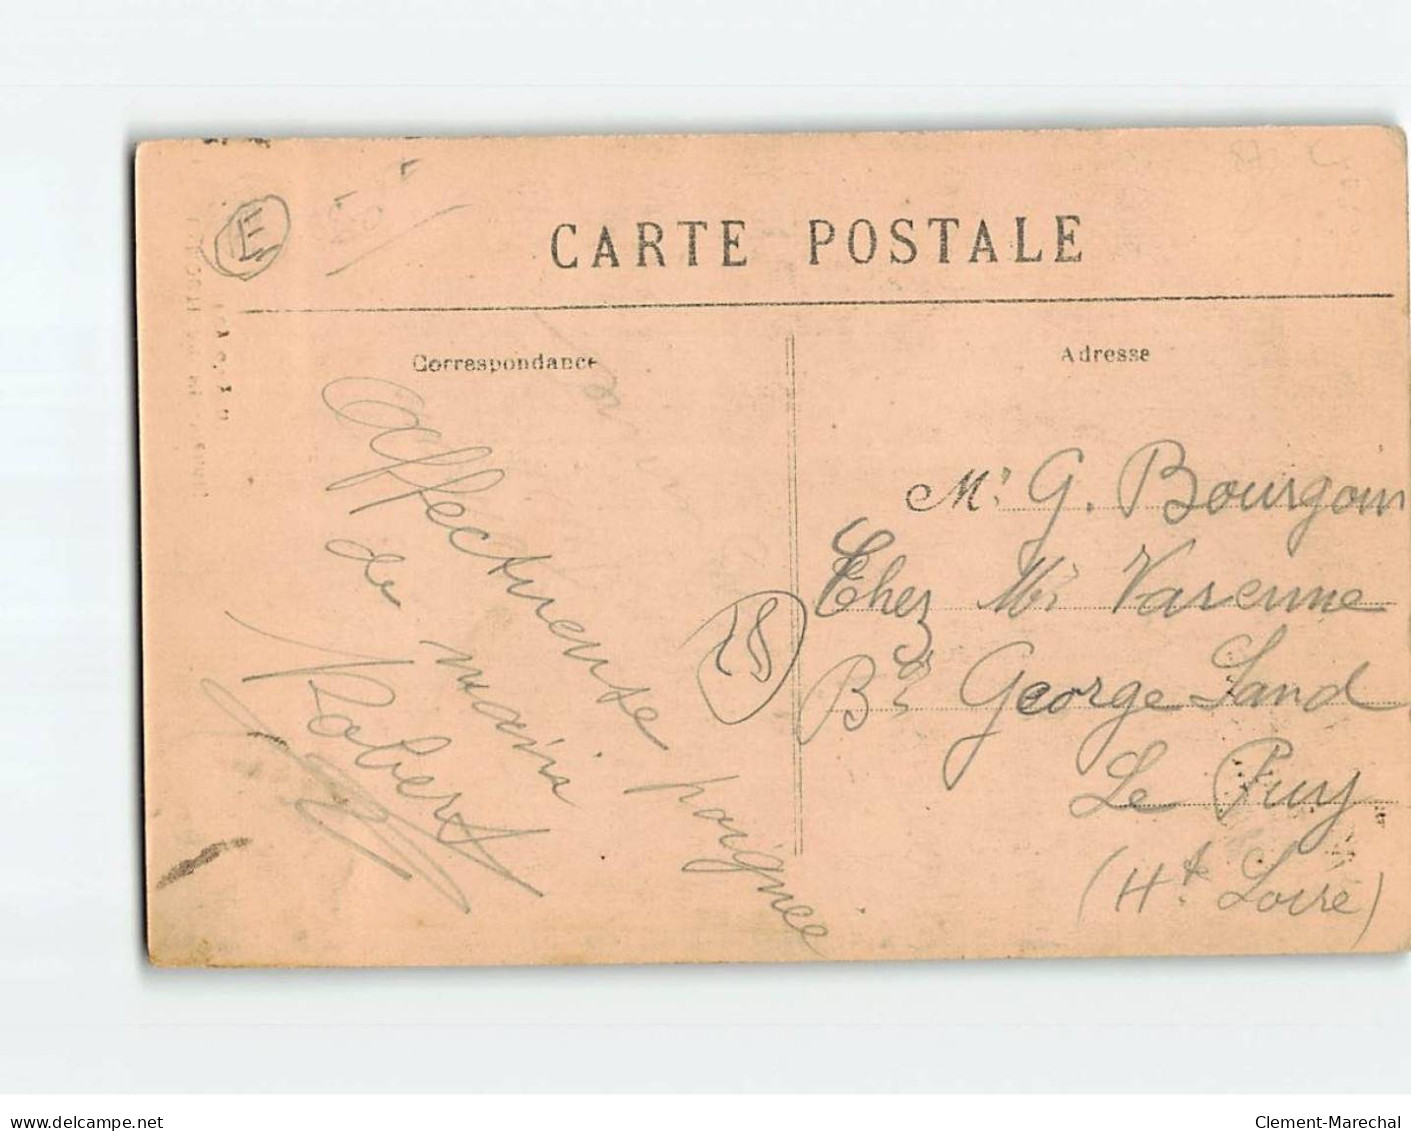 E
CARTE POSTALE
Correspondance
Adresse
Affectueuse poignée
de main
Robert
28
Mr G. Bourgoin
Chez Mr Varenne
Bd George Sand
Le Puy
(Hte Loire)
www.delcampe.net
Clement-Marechal